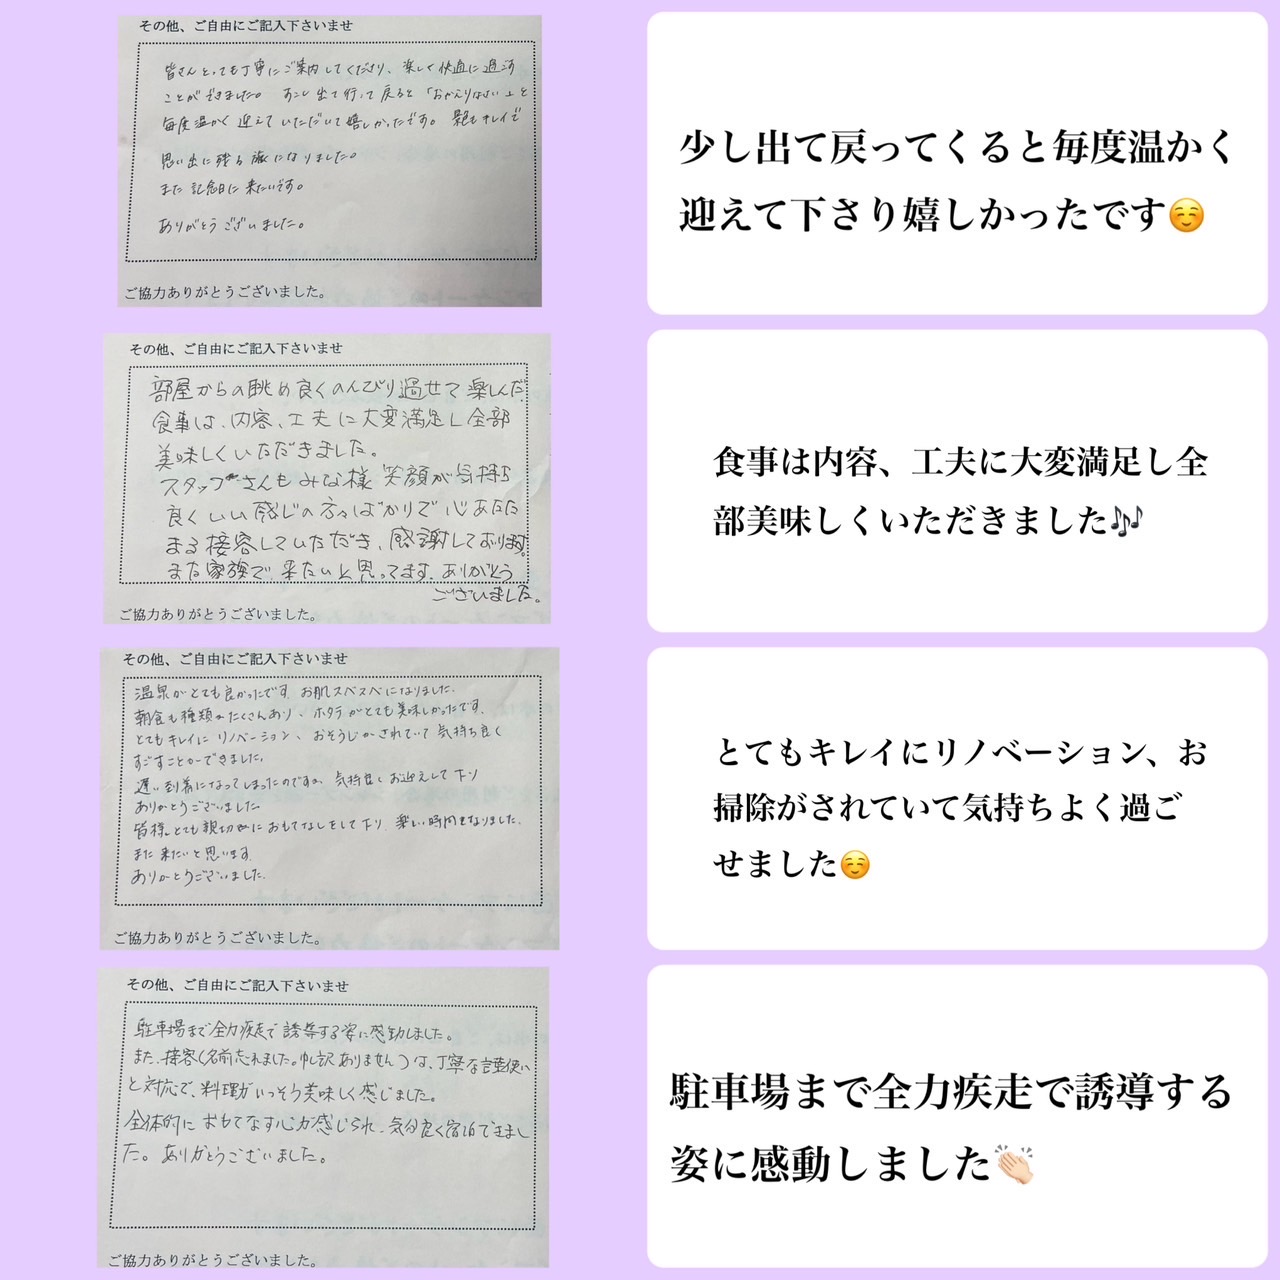 その他、ご自由にご記入下さいませ
皆さんとっても丁寧にご案内してくださり、楽しく快適に過ごす
ことができました。すこし出て行って戻ると「おかえりなさい」と
毎度温かく迎えていただいて嬉しかったです。景色もキレイで
思い出に残る旅になりました。
また記念日に来たいです。
ありがとうございました。
ご協力ありがとうございました。
少し出て戻ってくると毎度温かく
迎えて下さり嬉しかったです☺️
その他、ご自由にご記入下さいませ
部屋からの眺め良くのんびり過せて楽しんだ
食事は、内容、工夫に大変満足し全部
美味しくいただきました。
スタッフさんもみな様笑顔が気持ち
良くいい感じの方々ばかりで心あたた
まる接客していただき、感謝しております。
また家族で来たいと思ってます。ありがとう
ございました。
ご協力ありがとうございました。
食事は内容、工夫に大変満足し全
部美味しくいただきました🎶
その他、ご自由にご記入下さいませ
温泉がとても良かったです。お肌スベスベになりました。
朝食も種類がたくさんあり、ホタテがとても美味しかったです。
とてもキレイにリノベーション、おそうじがされていて気持ち良く
すごすことができました。
遅い到着になってしまったのですが、気持良くお迎えして下り
ありがとうございました
皆様とても親切におもてなしをして下り、楽しい時間となりました。
また来たいと思います。
ありがとうございました。
ご協力ありがとうございました。
とてもキレイにリノベーション、お
掃除がされていて気持ちよく過ご
せました☺️
その他、ご自由にご記入下さいませ
駐車場まで全力疾走で誘導する姿に感動しました。
また、接客(名前忘れました。申し訳ありません)は、丁寧な言葉使い
と対応で、料理がいっそう美味しく感じました。
全体的におもてなす心が感じられ、気分良く宿泊できまし
た。ありがとうございました。
ご協力ありがとうございました。
駐車場まで全力疾走で誘導する
姿に感動しました👏🏻